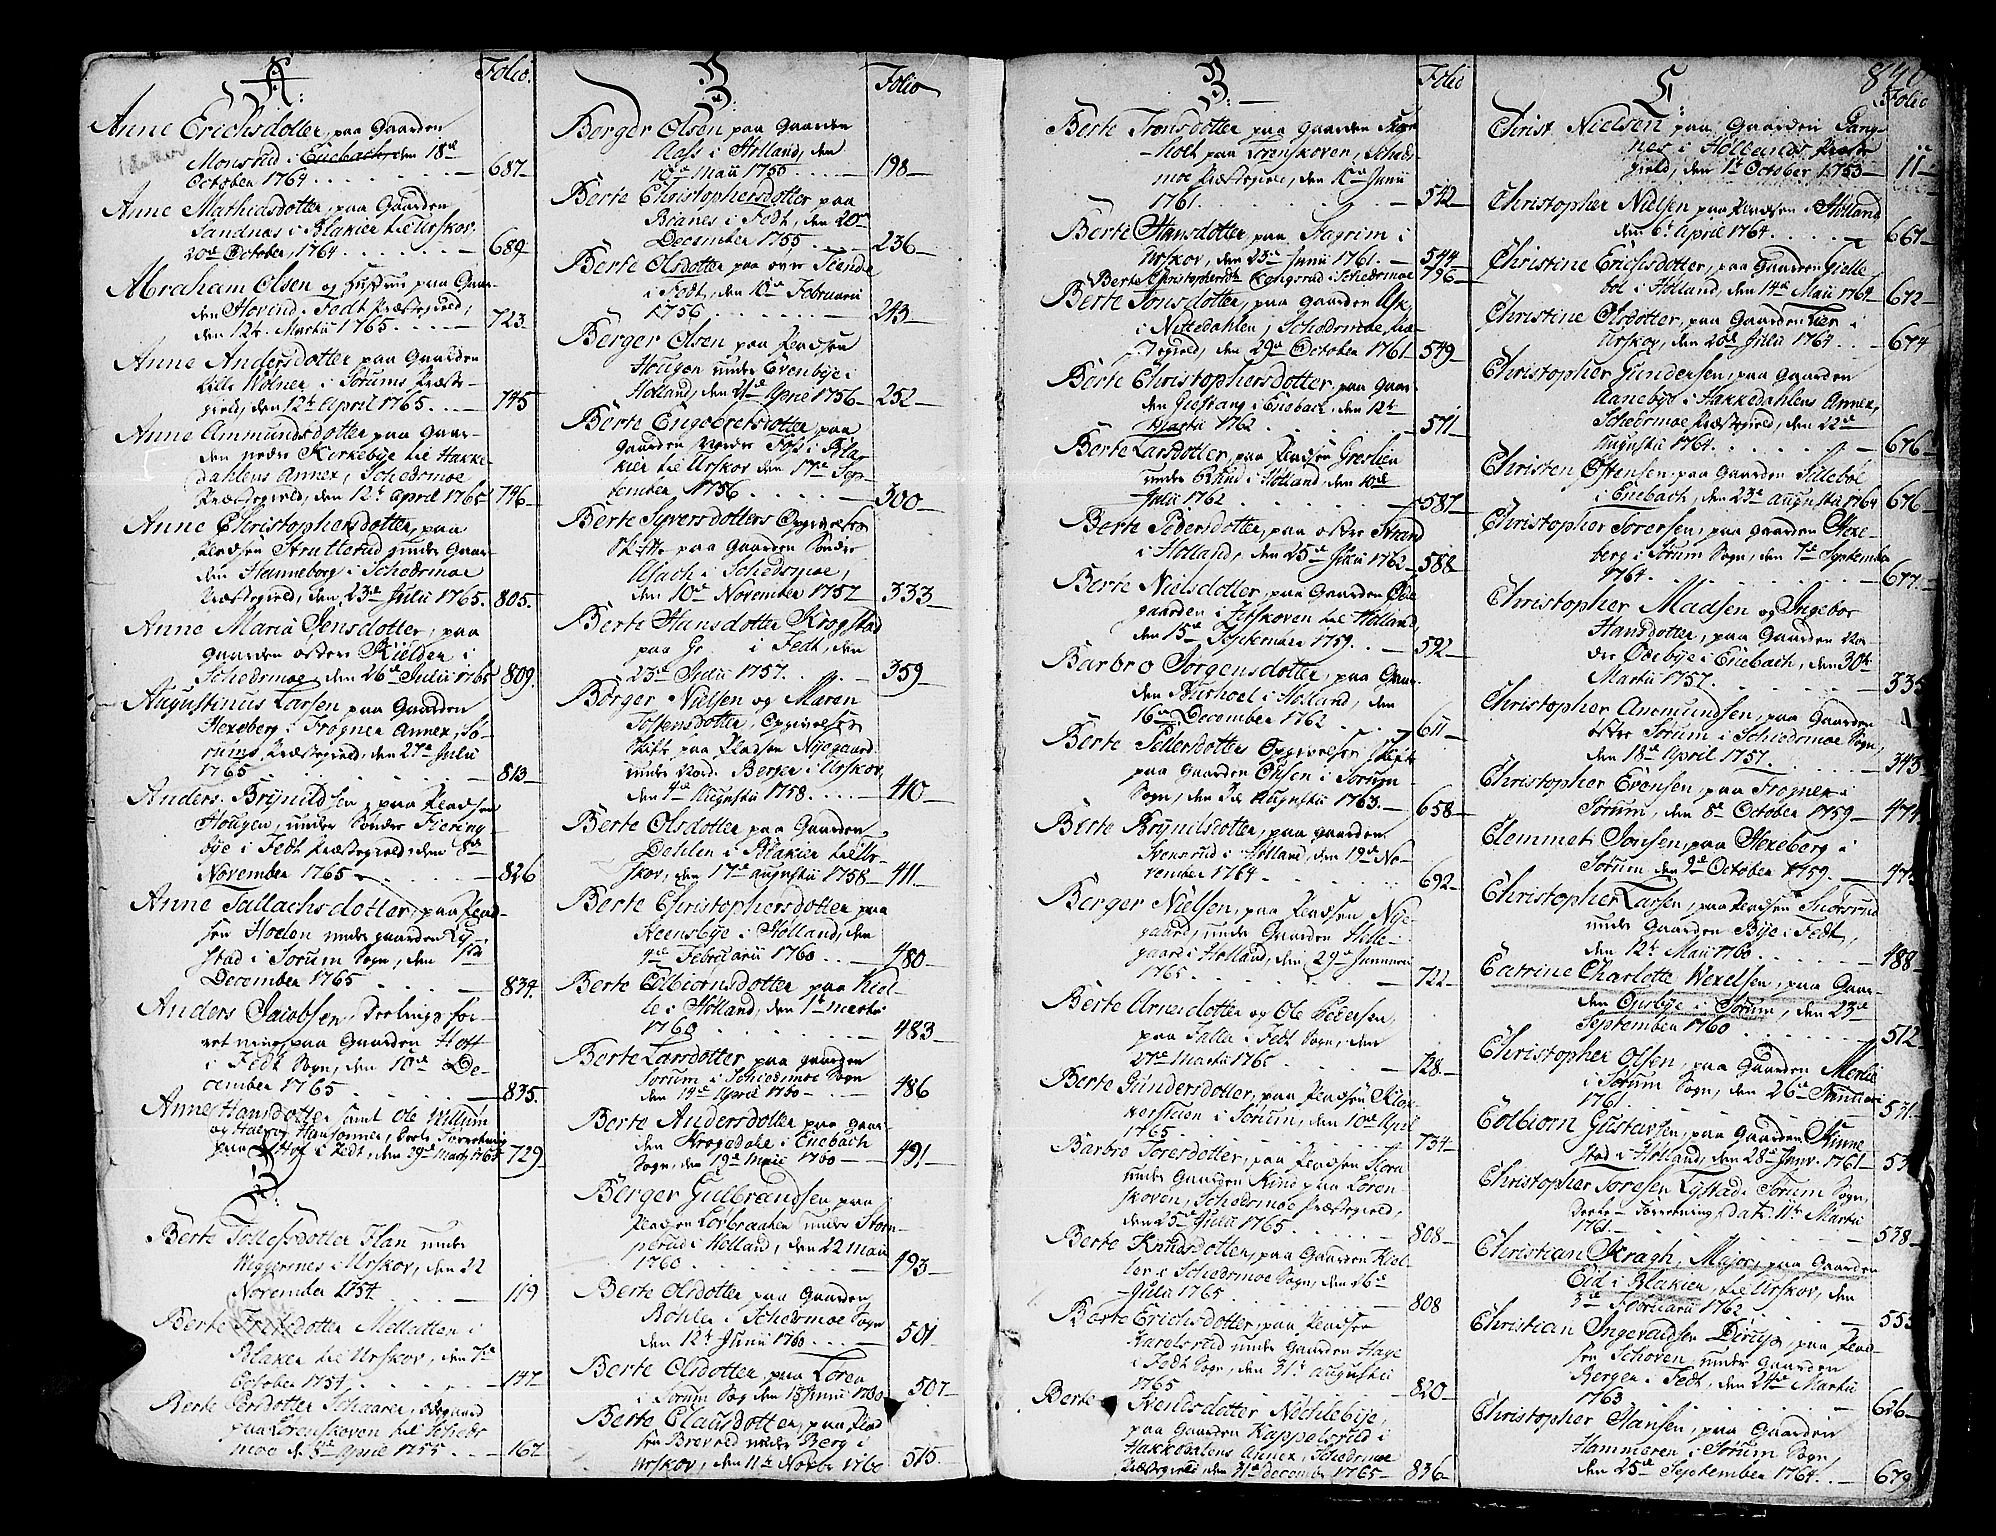 A: Folio.
Anne Erichsdotter, paa Gaarden
Monsrud i Enebach, den 18de
October 1764 687
Anne Mathiasdotter, paa Gaarden
Sandnæs i Blakier til Urskov,
20de October, 1764 689
Abraham Olsen og Hustrue paa Gaar-
den Hovind i Fedt Præstegield,
den 12te Martii 1765 723
Anne Andersdotter paa Gaarden
Lille Wølner i Sørums Præste-
gield, den 12te April 1765 745
Anne Ammundsdotter paa Gaar-
den nedre Kirkebye til Hakke-
dahlens Annex, Schedsmoe
Præstegield, den 12te April 1765 746
Anne Christophersdotter, paa
Pladsen Strutterud under Gaar-
den Henneborg i Schedsmoe
Præstegield, den 23de Julii 1765. 805.
Anne Maria Jensdotter, paa
Gaarden østere Kielden i
Schedsmoe, den 26de Julii 1765 809.
Augustinus Larsen paa Gaarden
Hexeberg i Frogner Annex, Sø-
rums Præstegield, den 27de Julii
1765 813
Anders Brynildsen, paa Pladsen
Hougen, under Søndre Fiering-
bye i Fedt Præstegield, den 8de
November 1765 826
Anne Tallachsdotter, paa Plad-
sen Hoelen under gaarden Ry-
stad i Sørum Sogn, den
December 1765 834.
Anders Jacobsen, Deelings for-
retning paa Gaarden Hoff
i Fedt Sogn, den 10de De-
cember 1765 835.
Anne Hansdotter samt Ole Willum
og Halvor Hansønner, Deels Forretning
paa Hof i Fedt, den 29de Martii 1765 729
B:
Berte Tollefsdotter Flan under
Wiggernes i Urskov, den 22
November 1754 119
Berte Mellatten i
Blaker til Urskov, den 7de
October 1754 147
Berte Persdotter Schaaren, ødegaard
paa Lørenskoven til Scheds-
moe d. 3de April 1755 167
B: Folio
Borger Olsen paa Gaarden
Aass i Holland, den
10de Maii 1755 198
Berte Christophersdotter paa
Branes i Fedt, den 20de
December 1755 236
Berte Olsdotter paa øvre Tiende
i Fedt, den 10de Februarii
1756 243
Berger Olsen paa Pladsen
Hougen under Evenbye i
Holland, den 21de April 1756 252
Berte Engebretsdotter, paa
Gaarden Nordre Foss i Bla-
kier til Urskov den 17de Sep-
tember 1756 300
Berte Syversdotters Opgivelses
Skifte paa Gaarden Søndre
Asach i Schedsmoe,
den 10de November 1757 333
Berte Hansdotter Krogstad
paa Gr i Fedt, den
23de Julii 1757 359
Børger Nielsen og Maren
Tostensdotter, Opgivelses
Skifte paa Pladsen Nysgaard
under Nord. Berger i Urskov,
den 4de Augusti 1758 410
Berte Olsdotter paa Gaarden
Dahlen i Blakier til Ur-
skov, den 17de Augustii 1758 411
Berte Christophersdotter paa
Heensbye i Holland, den
4de Februarii 1760 480
Berte Colbiornsdotter paa Kiøl-
le i Holland, den 1te Martii
1760 483
Berte Larsdotter paa gaarden
Sørum i Schiedsmoe Sogn
den 14de April 1760 486
Berte Andersdotter paa Gaar-
den Krogsdale i Enebach
Sogn, den 19de Maii 1760 491
Berger Gulbrandsen, paa
Pladsen Losbraaten under Storn-
perud i Holland, den 22 Maii
1760 493
Berte Olsdotter paa Gaarden
Bøhler i Schedsmoe Sogn
den 12te Junii 1760 501
Berte Olsdotter, paa Loren
i Sørum Sog den 18 Junii 1760 507
Berte Clausdotter, paa Plad
sen Breveld under Berg i
Urskov, den 11te Novbr 1760 515.
B: Folio
Berte Tronsdotter paa Gaarden
holt paa Lørenskoven, Scheds-
moe Præstegield, den 10de Junii
1761. 542
Berte Hansdotter, paa Hagrim i
Urskov, den 23de Junii 1761. 544
Berte Christophersdr Kongsrud i Schedsmoe 796
Berte Jonsdotter, paa Gaarden Ask,
i Nittedahlen, Schedsmoe Præ-
stegield, den 29de October 1761 549
Berte Christophersdotter, paa Gaar-
den Giestang i Enebach, den 12te
Martii 1762 571
Berte Larsdotter, paa Pladsen Græslien
under Eklund i Holland, den 10de
Julii 1762 587
Berte Pedersdotter, paa østre Strand
i Holland, den 25de Julii 1762 588
Berte Nielsdotter, paa Gaarden Øde
gaarden i Enskoven til Holland,
den 15de September 1759. 592
Barbro Jørgensdotter, paa Gaar-
den Buxhoel i Holland, den
16de December 1762 611
Berte Pedersdotters Opgivelses Skifte
paa Gaarden Onsen i Sørum
Sogn, den 3de Augustii 1763 658
Berte Brynildsdotter, paa gaarden
Svensrud i Holland, den 19de No-
vember 1764 692
Berger Nielsen, paa Pladsen Nye-
gaard, under Gaarden Halle-
gaard i Holland, den 29de Januarii
1765 722
Berte Arnesdotter og Ole Pedersen,
paa Falla i Fedt Sogn, den
27de Martii 1765 728
Berte Gundersdotter, paa Pladsen Klok-
kerstien i Sørum, den 10de April
1765 734
Barbro Toresdotter, paa Pladsen Flora
under Gaarden Rind paa Løren-
skoven, Schedsmoe Præstegield,
den 25de Julii 1765 808
Berte Knudsdotter, paa Gaarden Kiel-
len i Schedsmoe Sogn, den 26de
Julii 1765 808
Berte Erichsdotter, paa Pladsen
Karelsrud under Gaarden Hage
i Fedt Sogn, den 31te Augustii
1765 820
Berte Hendesdotter Nøchlebye,
paa Gaarden Kappelsrud i
Hakkedalens Annex, Schedsmoe
Præstegield den 31te December 1765 836
C: 840 Folio
Christ Nielsen, paa Gaarden Gang-
nes i Hollands Præste
gield, den 1te October 1753 11
Christopher Nielsen paa Pladsen i Holland
den 6te April 1764 667
Christine Erichsdotter, paa Gaarden Gielle-
bøl i Holland, den 14de Maii 1764 672
Christine Olsdotter, paa Gaarden Lier i
Urskov, den 20de Julii 1764 674
Christopher Gundersen, paa Gaarden
Aanebye i Hakkedahlens Annex,
Schedsmoe Præstegield, den 22de
Augustii 1764. 676
Christen Estensen, paa Gaarden Sillebøl
i Enebach, den 23de Augustii 1764 676
Christopher Torersen, paa Gaarden Hexe-
berg i Sørum Sogn, den 7de September
1764. 677
Christopher Madsen og Ingebor
Hansdotter, paa Gaarden Nor-
dre Ødebye i Enebach, den 30te
Martii 1757 335
Christopher Ammundsen, paa Gaarden
østre Sørum i Schiedsmoe Sogn,
den 18de April 1757 343
Christopher Evensen, paa Frogner i
Sørum, den 8de October 1759 474
Clemmet Jonsen, paa Hexeberg i
Sørum den 9de October 1759 475
Christopher Larsen, paa Pladsen Snorsrud
under Gaarden Bye i Fedt,
den 12te Maii 1760 488
Catrine Charlotte Wexelsen, paa Gaar-
den Onsbye i Sørum, den 23de
September 1760 512
Christopher Olsen, paa Gaarden Merlie
i Sørum Sogn, den 26de Januarii
1761 531
Colbiorn Gustavsen, paa Gaarden Kinne
stad i Holland, den 28de Janv. 1761 53
Christopher Toresen Lystad i Sørum Sogn,
Deele-Forretning, dat: 11te Martii
1761 538
Christian Kragh, Major, paa Gaarden
Eid i Blakier, til Urskov, den
5de Februarii 1762 553
Christian Ingevaldsen Dørrijs, paa Plad-
sen Schoven, under Gaarden
Bergen i Fedt, den 24de Martii
1763 626
Christopher Hansen, paa Gaarden
Hammeren i Sørum Sogn,
den 25de September 1764. 679